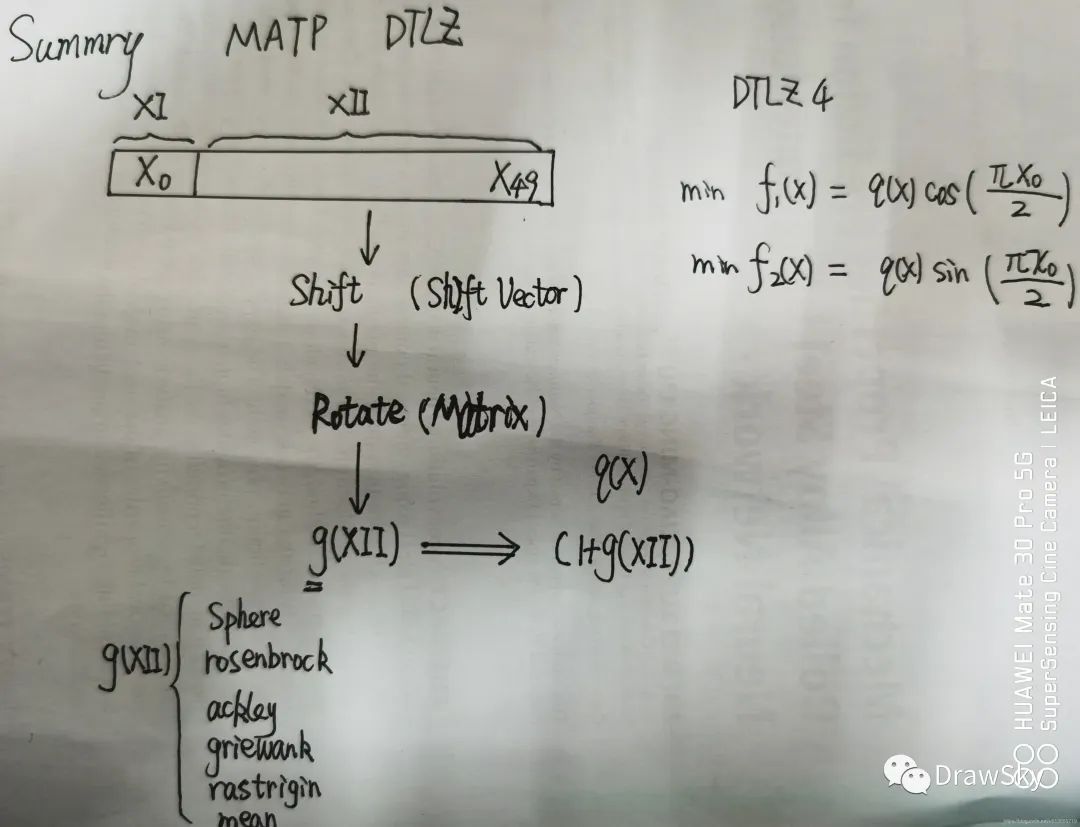 Summry MATP DTLZ
XI XII
X₀ X₄₉
Shift (Shift Vector)
Rotate (Matrix)
g(XII) ⟹ (1+g(XII))
q(X)
g(XII) {
Sphere
rosenbrock
ackley
griewank
rastrigin
mean
DTLZ 4
min f₁(x) = q(x) cos(πX₀/2)
min f₂(x) = q(x) sin(πX₀/2)
HUAWEI Mate 30 Pro 5G
SuperSensing Cine Camera | LEICA
DrawSky